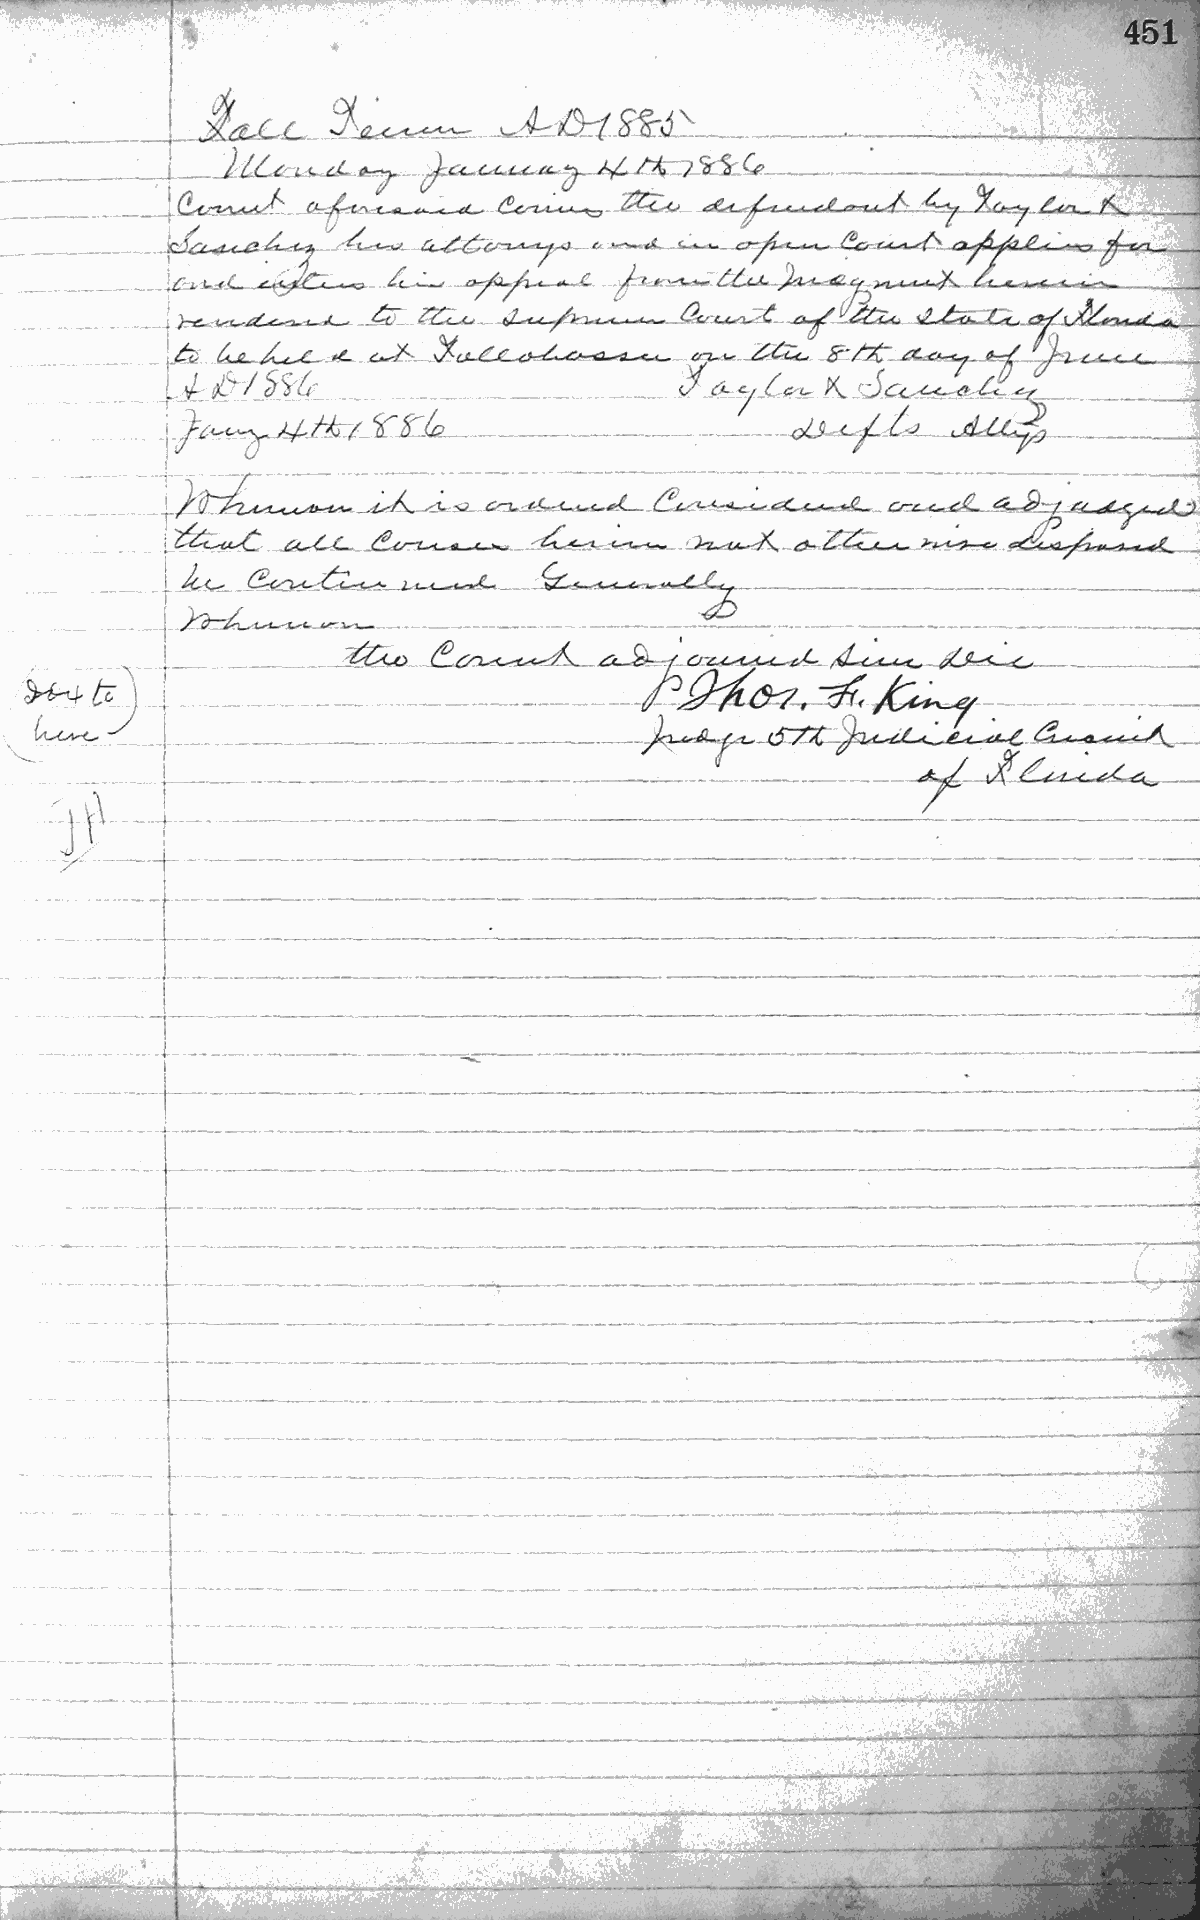 451
Fall Term A D 1885
Monday January 4th 1886
Court aforesaid comes the defendant by Taylor &
Sanchez his attorneys and in open Court applies for
and enters his appeal from the Judgment herein
rendered to the Supreme Court of the State of Florida
to be held at Tallahassee on the 8th day of June
A D 1886 Taylor & Sanchez
Jany 4th 1886 Defts Attys
Whereupon it is ordered Considered and adjudged
that all Causes herein not otherwise disposed
be Continued Generally
Whereupon
the Court adjourned Sine Die
Thos. F. King
Judge 5th Judicial Circuit
of Florida
to
here
JH